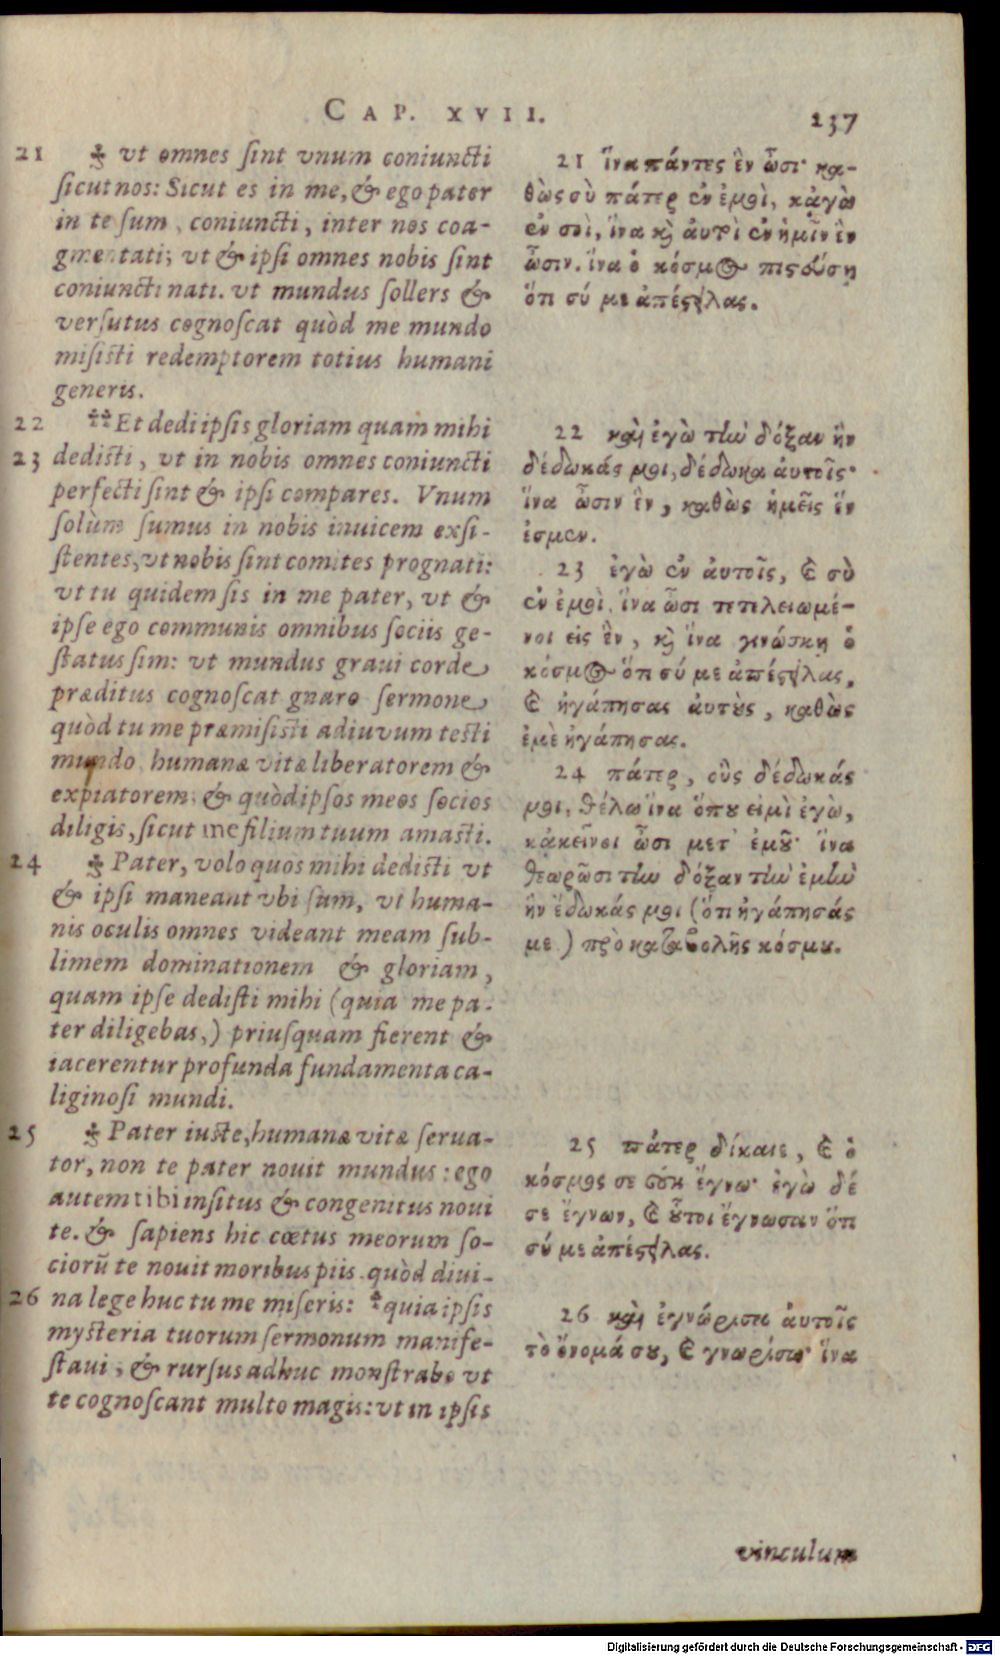 CAP. XVII.
237
21 ⁜ vt omnes ſint vnum coniuncti
ſicut nos: Sicut es in me, & ego pater
in te ſum, coniuncti, inter nos coa-
gmentati; vt & ipſi omnes nobis ſint
coniuncti nati. vt mundus ſollers &
verſutus cognoſcat quòd me mundo
miſiſti redemptorem totius humani
generis.
22 ⁜ Et dedi ipſis gloriam quam mihi
23 dediſti, vt in nobis omnes coniuncti
perfecti ſint & ipſi compares. Vnum
ſolùm ſumus in nobis inuicem exſi-
ſtentes, vt nobis ſint comites prognati:
vt tu quidem ſis in me pater, vt &
ipſe ego communis omnibus ſociis ge-
ſtatus ſim: vt mundus graui corde
præditus cognoſcat gnaro ſermone
quòd tu me præmiſiſti adiuvum teſti
mundo humanæ vitæ liberatorem &
expiatorem, & quòd ipſos meos ſocios
diligis, ſicut me filium tuum amaſti.
24 ⁜ Pater, volo quos mihi dediſti vt
& ipſi maneant vbi ſum, vt huma-
nis oculis omnes videant meam ſub-
limem dominationem & gloriam,
quam ipſe dediſti mihi (quia me pa-
ter diligebas,) priuſquam fierent &
iacerentur profunda fundamenta ca-
liginoſi mundi.
25 ⁜ Pater iuſte, humanæ vitæ ſerua-
tor, non te pater nouit mundus: ego
autem tibi inſitus & congenitus noui
te. & ſapiens hic cœtus meorum ſo-
ciorũ te nouit moribus piis quòd diui-
26 na lege huc tu me miſeris: ⁜ quia ipſis
myſteria tuorum ſermonum manife-
ſtaui, & rurſus adhuc monſtrabo vt
te cognoſcant multo magis: vt in ipſis
21 ἵνα πάντες ἓν ὦσι· κα-
θὼς σὺ πάτερ ἐν ἐμοὶ, κἀγὼ
ἐν σοὶ, ἵνα καὶ αὐτοὶ ἐν ἡμῖν ἓν
ὦσιν. ἵνα ὁ κόσμος πιστεύσῃ
ὅτι σύ με ἀπέστειλας.
22 καὶ ἐγὼ τὴν δόξαν ἣν
δέδωκάς μοι, δέδωκα αὐτοῖς·
ἵνα ὦσιν ἓν, καθὼς ἡμεῖς ἕν
ἐσμεν.
23 ἐγὼ ἐν αὐτοῖς, καὶ σὺ
ἐν ἐμοὶ. ἵνα ὦσι τετελειωμέ-
νοι εἰς ἓν, καὶ ἵνα γινώσκῃ ὁ
κόσμος ὅτι σύ με ἀπέστειλας,
καὶ ἠγάπησας αὐτοὺς, καθὼς
ἐμὲ ἠγάπησας.
24 πάτερ, οὓς δέδωκάς
μοι, θέλω ἵνα ὅπου εἰμὶ ἐγὼ,
κἀκεῖνοι ὦσι μετ' ἐμοῦ· ἵνα
θεωρῶσι τὴν δόξαν τὴν ἐμὴν
ἣν ἔδωκάς μοι (ὅτι ἠγάπησάς
με) πρὸ καταβολῆς κόσμου.
25 πάτερ δίκαιε, καὶ ὁ
κόσμος σε οὐκ ἔγνω· ἐγὼ δέ
σε ἔγνων, καὶ οὗτοι ἔγνωσαν ὅτι
σύ με ἀπέστειλας.
26 καὶ ἐγνώρισα αὐτοῖς
τὸ ὄνομά σου, καὶ γνωρίσω· ἵνα
vinculum
Digitalisierung gefördert durch die Deutsche Forschungsgemeinschaft - DFG